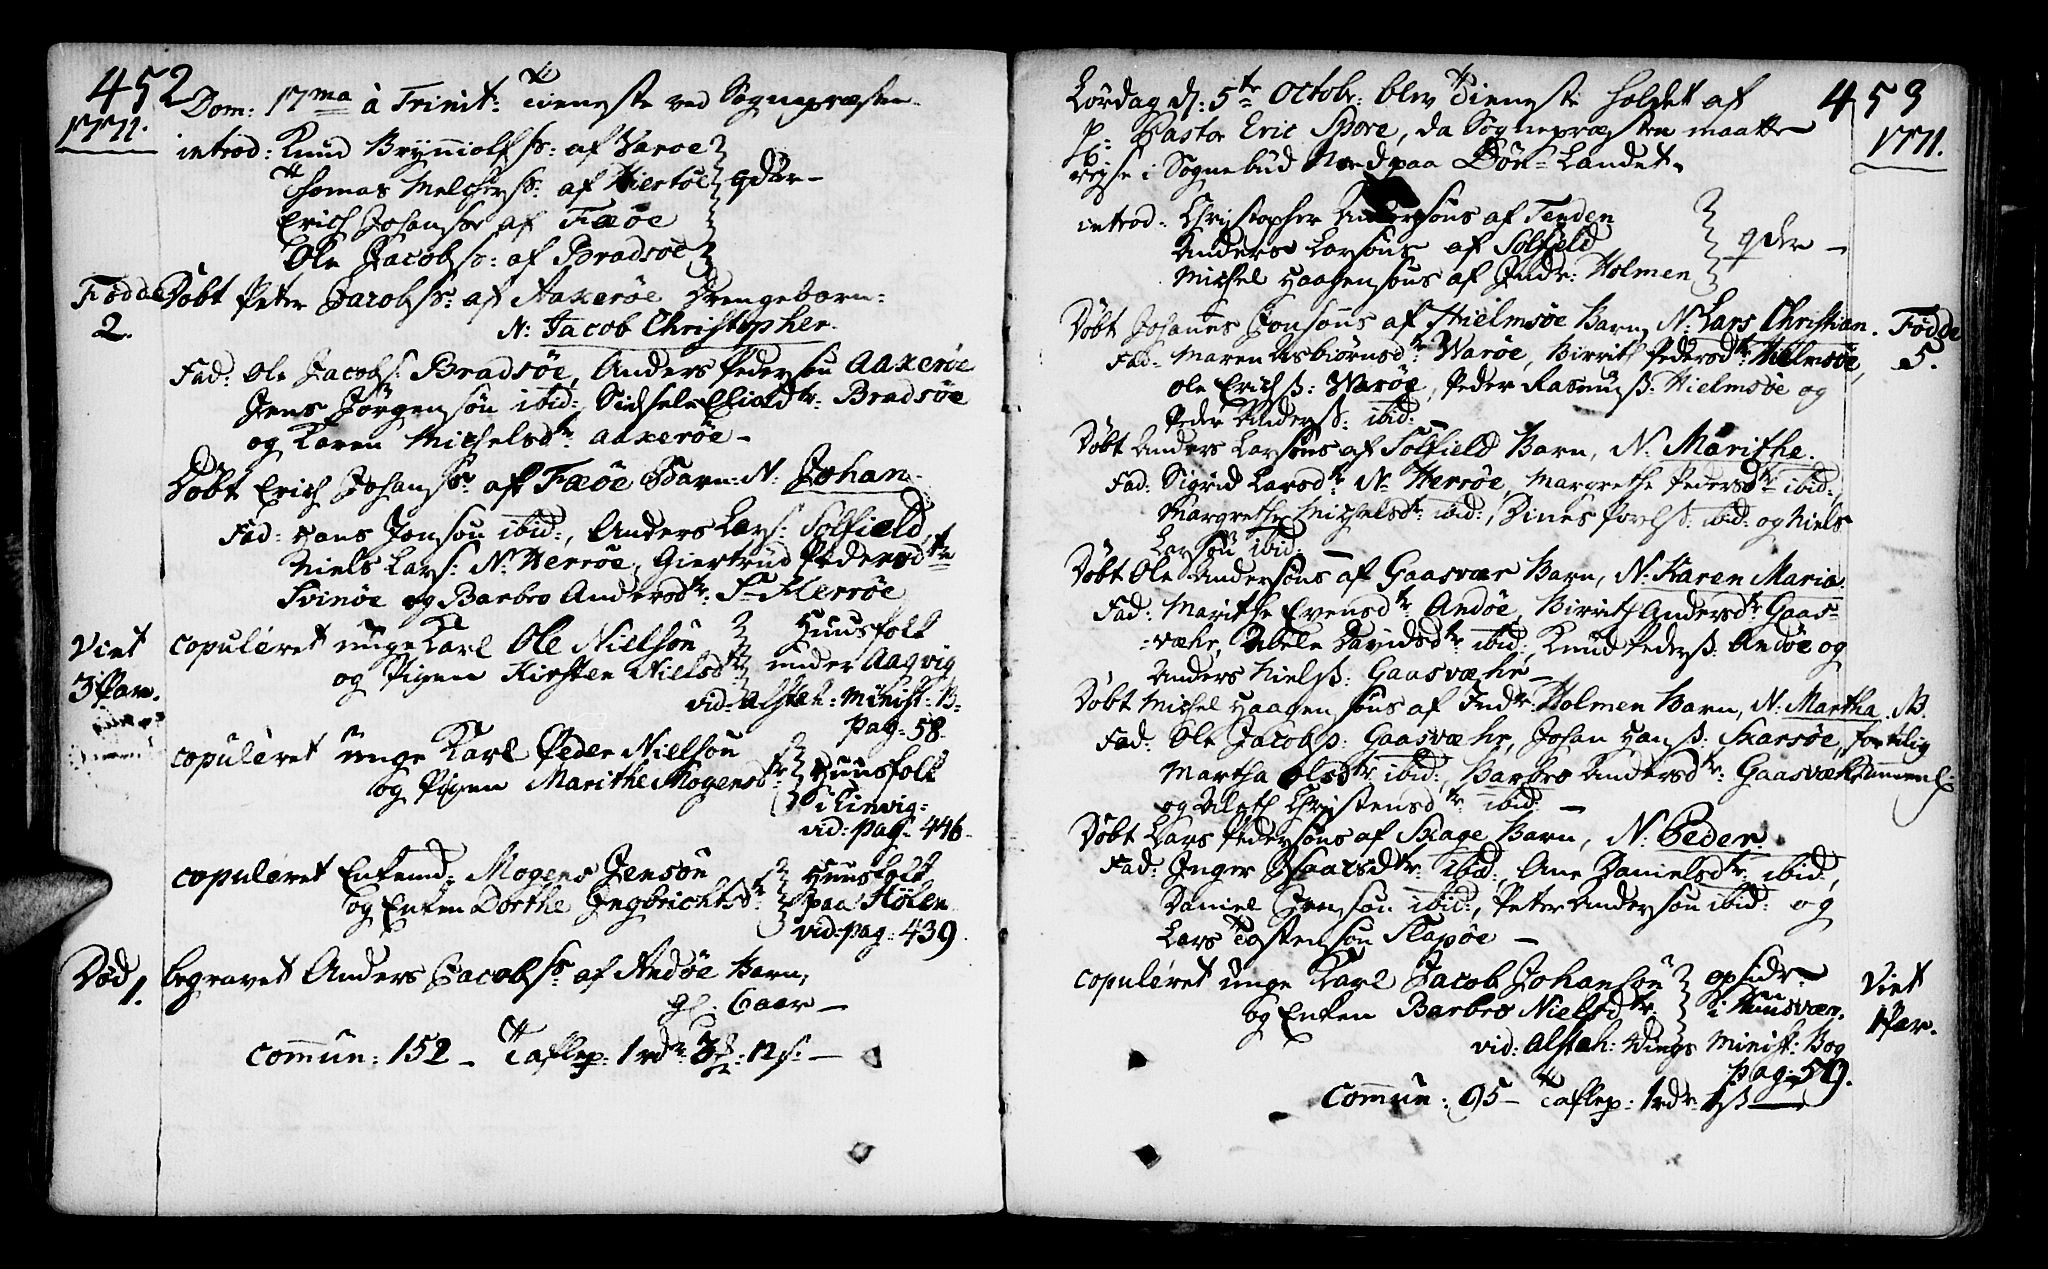 452
1771.
Dom: 17ma à Trinit: Tieneste ved Sognepræsten.
introd: Knud Brynniolfss: af Varoe
Thomas Melcherss: af Hiertøe qdur –
Erich Johansss af Fæøe
Ole Jacobss: af Bradsøe
Fødde 2.
Døbt Peter Jacobss: af Aakerøe Drengebarn:
N: Jacob Christopher.
Fad: Ole Jacobs: Bradsøe, Anders Pedersøn Aakerøe
Jens Jörgensøn ibid:, Sidsele Eliædtr: Bradsøe
og Karen Michelsdtr Aakerøe –
Døbt Erich Johanss: af Fæøe Barn: N: Johan.
Fad: Hans Jonsøn ibid:, Anders Lars: Solfield,
Niels Lars: N: Herrøe, Giertrud Pedersdtr
Svinøe og Barbro Andersdtr: S: Herrøe
Viet 3 Par.
copuleret unge Karl Ole Nielsøn Huusfolk
og Pigen Kirsten Nielsdtr under Aagvig
vid: Alstah: Minist: B:
pag: 58.
copuleret unge Karl Peder Nielsøn Huusfolk
og Pigen Marithe Mogensdtr
vid: pag: 446.
copuleret Enkemd: Mogens Jensøn Huusfolk
og Enken Dorthe Ingbrichtsdtr paa Hølen
vid: pag: 439.
Død 1.
begravet Anders Jacobss: af Andøe Barn,
gl: 6 aar –
commun: 152 – Taflep: 1 rdr 3 : 12 s: –
453
1771.
Lördag d: 5te Octobr: blev Tieneste holdet af
Hr: Pastor Eric Spore, da Sognepræsten maatte
rejse i Sognebud Nord paa Døn-Landet.
introd: Christopher Andersøns af Tenden
Anders Larsøns af Solfield qder –
Michel Haagensøns af Indr: Holmen
Døbt Johannes Jonsøns af Hielmsøe Barn, N: Lars Christian. Fødde 5.
Fad: Maren Asbiørnsdtr Warøe, Birrith Pedersdtr Hielmsøe,
Ole Erichss: Warøe, Peder Rasmuss: Hielmsøe og
Peder Anderss: ibid: –
Døbt Anders Larsøns af Solfield Barn, N: Marithe.
Fad: Sigrid Larsdtr N: Herrøe, Margrethe Pedersdtr ibid:,
Margrethe Michelsdtr: ibid:, Dines Povelss: ibid: og Niels
Larsøn ibid: –
Døbt Ole Andersøns af Gaasvær Barn, N: Karen Maria
Fad: Marithe Evensdtr Andøe, Birrith Andersdtr Gaas-
-væhr, Abele Davidsdtr ibid:, Knud Pederss: Andøe og
Anders Nielss: Gaasvæhr –
Døbt Michel Haagensøns af Indr: Holmen Barn, N: Martha. NB.
Fad: Ole Jacobss: Gaasvæhr, Johan Hanss: Skarsøe,
Martha Olsdtr ibid:, Barbro Andersdtr: Gaasvæhr
og Christensdtr: ibid: –
Døbt Lars Pedersøns af Skage Barn, N: Peder.
Fad: Inger Isaacsdtr: ibid:, Ane Danielsdtr: ibid,
Daniel Jensøn ibid:, Peter Andersøn ibid: og
Lars Tostensøn Slapøe –
copuleret unge Karl Jacob Johansøn opsidr Viet 1 Par.
og Enken Barbro Nielsdtr: i Huusvær.
vid: Alstah: Minist: Bog
pag: 59.
Commun: 95 – Taflep: 1 rdr: